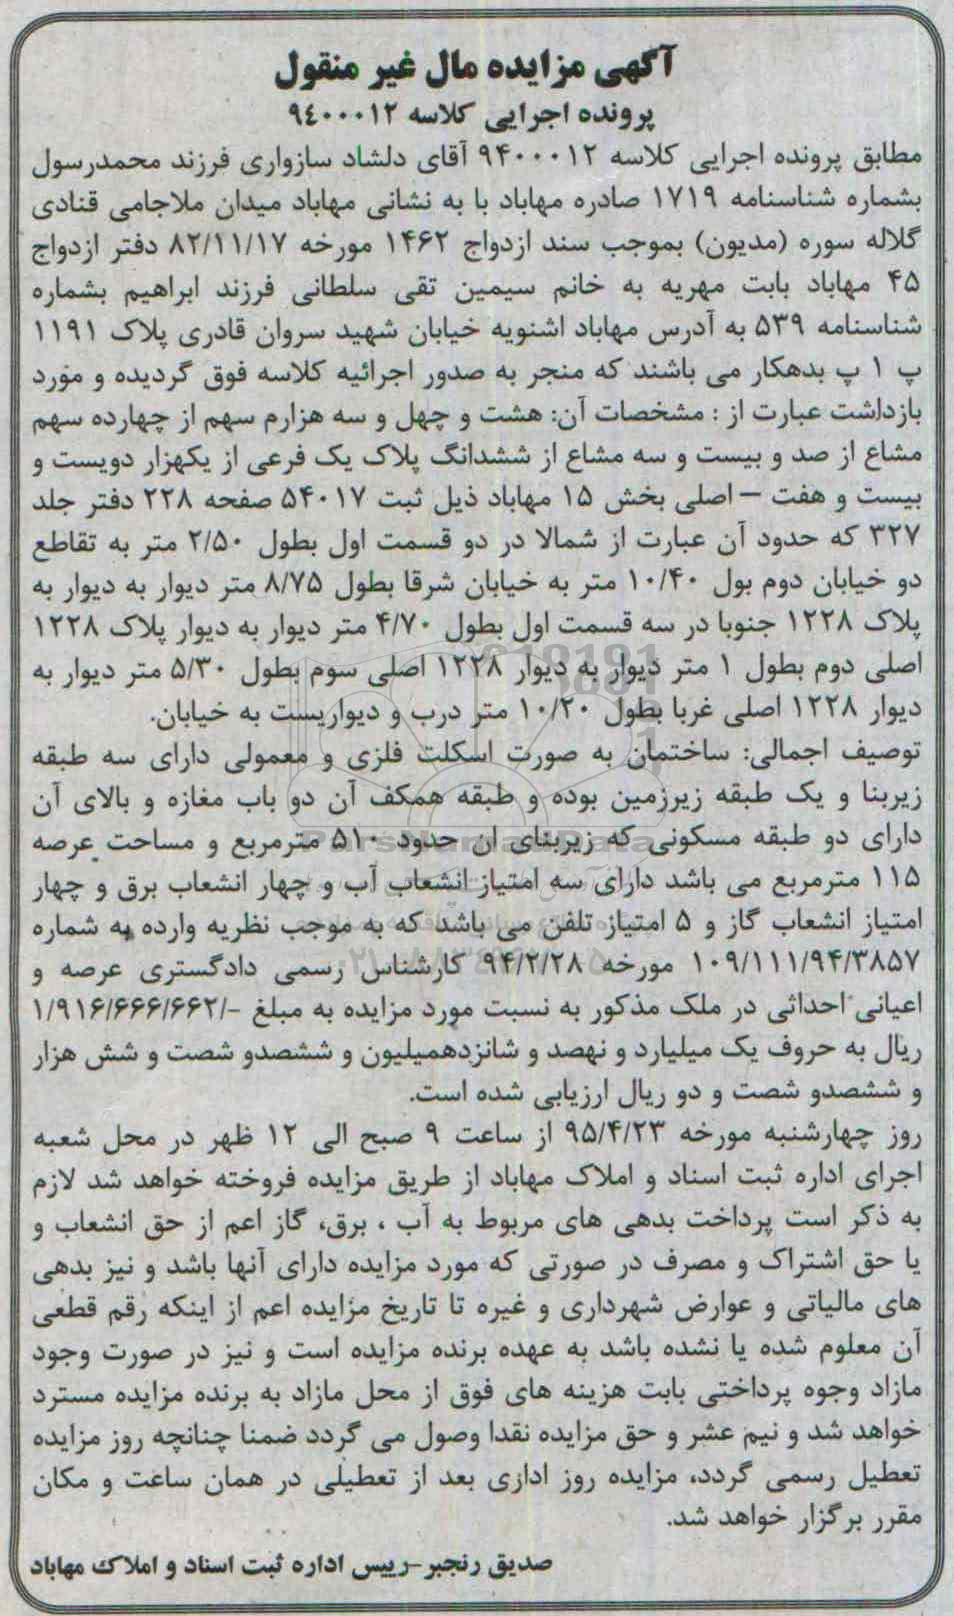 آگهی مزایده مال غیر منقول
پرونده اجرایی کلاسه ۹۴۰۰۰۱۲
مطابق پرونده اجرایی کلاسه ۹۴۰۰۰۱۲ آقای دلشاد سازواری فرزند محمدرسول
بشماره شناسنامه ۱۷۱۹ صادره مهاباد با به نشانی مهاباد میدان ملاجامی قنادی
گلاله سوره (مدیون) بموجب سند ازدواج ۱۴۶۲ مورخه ۸۲/۱۱/۱۷ دفتر ازدواج
۴۵ مهاباد بابت مهریه به خانم سیمین تقی سلطانی فرزند ابراهیم بشماره
شناسنامه ۵۳۹ به آدرس مهاباد اشنویه خیابان شهید سروان قادری پلاک ۱۱۹۱
پ ۱ پ بدهکار می باشند که منجر به صدور اجرائیه کلاسه فوق گردیده و مورد
بازداشت عبارت از : مشخصات آن: هشت و چهل و سه هزارم سهم از چهارده سهم
مشاع از صد و بیست و سه مشاع از ششدانگ پلاک یک فرعی از یکهزار دویست و
بیست و هفت – اصلی بخش ۱۵ مهاباد ذیل ثبت ۵۴۰۱۷ صفحه ۲۲۸ دفتر جلد
۳۲۷ که حدود آن عبارت از شمالا در دو قسمت اول بطول ۲/۵۰ متر به تقاطع
دو خیابان دوم بول ۱۰/۴۰ متر به خیابان شرقا بطول ۸/۷۵ متر دیوار به دیوار به
پلاک ۱۲۲۸ جنوبا در سه قسمت اول بطول ۴/۷۰ متر دیوار به دیوار پلاک ۱۲۲۸
اصلی دوم بطول ۱ متر دیوار به دیوار ۱۲۲۸ اصلی سوم بطول ۵/۳۰ متر دیوار به
دیوار ۱۲۲۸ اصلی غربا بطول ۱۰/۲۰ متر درب و دیواریست به خیابان.
توصیف اجمالی: ساختمان به صورت اسکلت فلزی و معمولی دارای سه طبقه
زیربنا و یک طبقه زیرزمین بوده و طبقه همکف آن دو باب مغازه و بالای آن
دارای دو طبقه مسکونی که زیربنای ان حدود ۵۱۰ مترمربع و مساحت عرصه
۱۱۵ مترمربع می باشد دارای سه امتیاز انشعاب آب و چهار انشعاب برق و چهار
امتیاز انشعاب گاز و ۵ امتیاز تلفن می باشد که به موجب نظریه وارده به شماره
۱۰۹/۱۱۱/۹۴/۳۸۵۷ مورخه ۹۴/۲/۲۸ کارشناس رسمی دادگستری عرصه و
اعیانی احداثی در ملک مذکور به نسبت مورد مزایده به مبلغ -/۱/۹۱۶/۶۶۶/۶۶۲
ریال به حروف یک میلیارد و نهصد و شانزدهمیلیون و ششصدو شصت و شش هزار
و ششصدو شصت و دو ریال ارزیابی شده است.
روز چهارشنبه مورخه ۹۵/۴/۲۳ از ساعت ۹ صبح الی ۱۲ ظهر در محل شعبه
اجرای اداره ثبت اسناد و املاک مهاباد از طریق مزایده فروخته خواهد شد لازم
به ذکر است پرداخت بدهی های مربوط به آب ، برق، گاز اعم از حق انشعاب و
یا حق اشتراک و مصرف در صورتی که مورد مزایده دارای آنها باشد و نیز بدهی
های مالیاتی و عوارض شهرداری و غیره تا تاریخ مزایده اعم از اینکه رقم قطعی
آن معلوم شده یا نشده باشد به عهده برنده مزایده است و نیز در صورت وجود
مازاد وجوه پرداختی بابت هزینه های فوق از محل مازاد به برنده مزایده مسترد
خواهد شد و نیم عشر و حق مزایده نقدا وصول می گردد ضمنا چنانچه روز مزایده
تعطیل رسمی گردد، مزایده روز اداری بعد از تعطیلی در همان ساعت و مکان
مقرر برگزار خواهد شد.
صدیق رنجبر-رییس اداره ثبت اسناد و املاک مهاباد